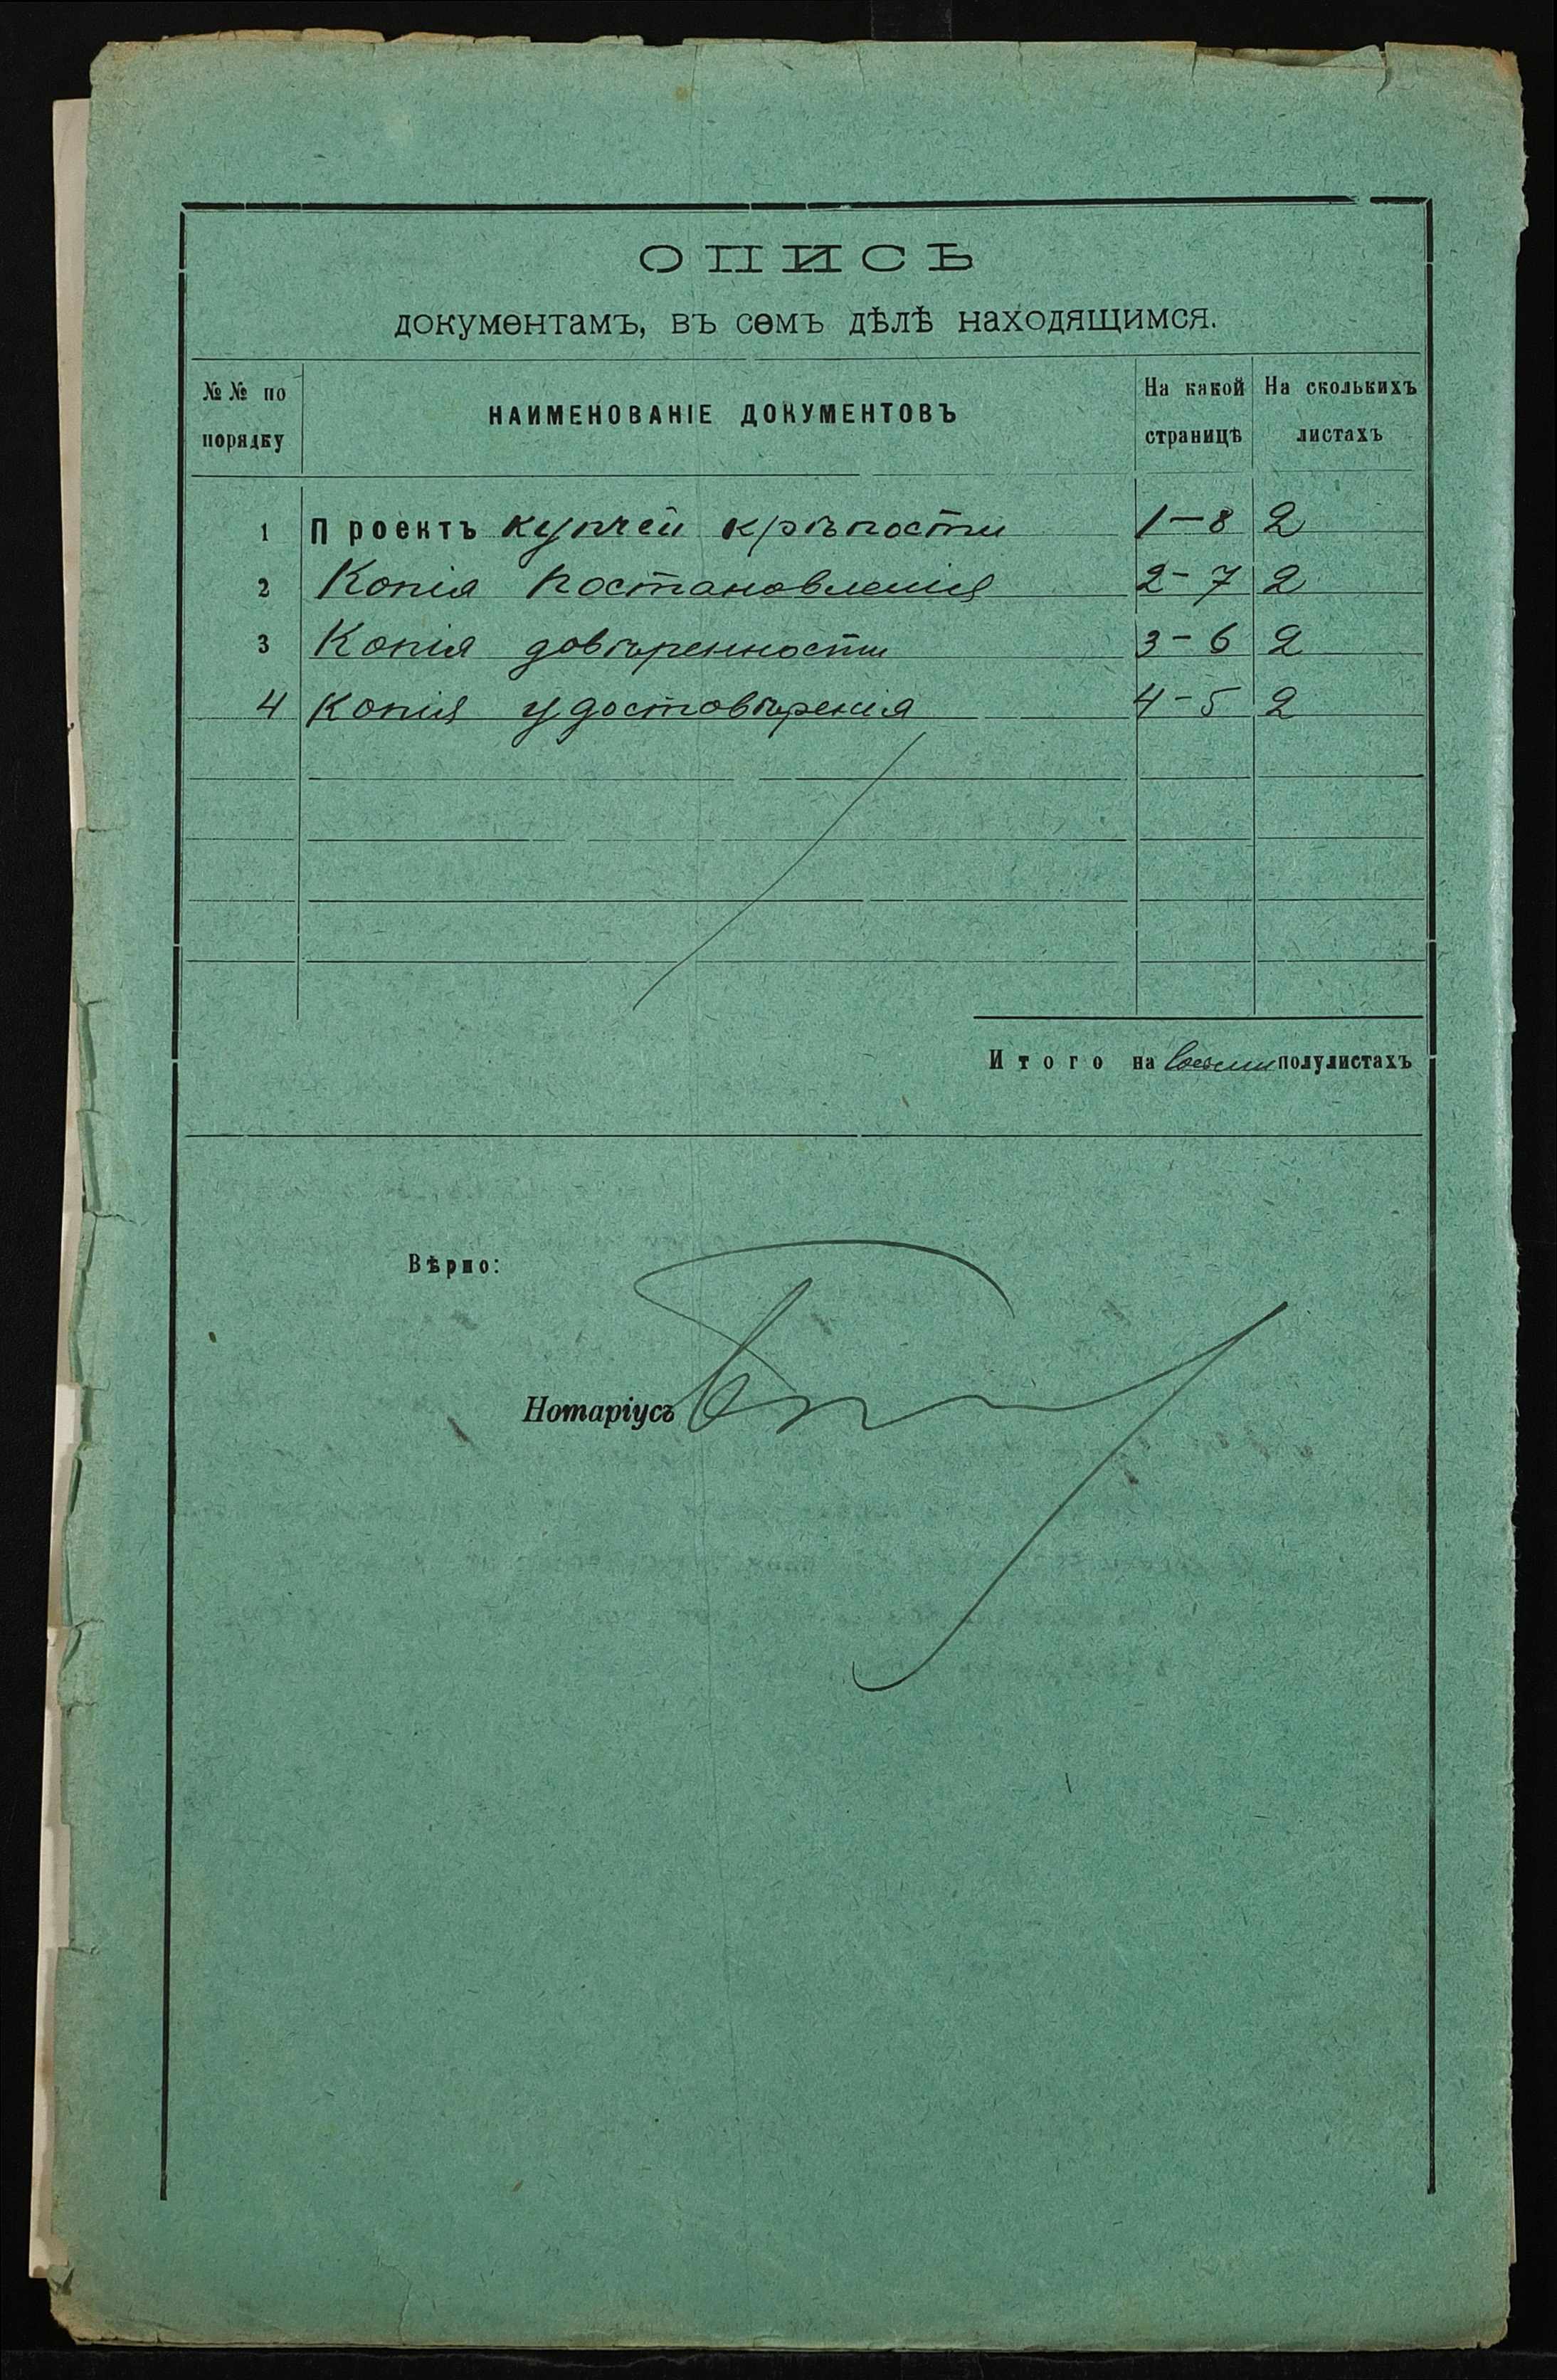 ОПИСЬ
документамъ, въ семъ дѣлѣ находящимся.
№№ по порядку
НАИМЕНОВАНІЕ ДОКУМЕНТОВЪ
На какой страницѣ
На сколькихъ листахъ
1 Проектъ купчей крѣпости 1-8 2
2 Копія постановленія 2-7 2
3 Копія довѣренности 3-6 2
4 Копія удостовѣренія 4-5 2
Итого на восьми полулистахъ
Вѣрно:
Нотаріусъ